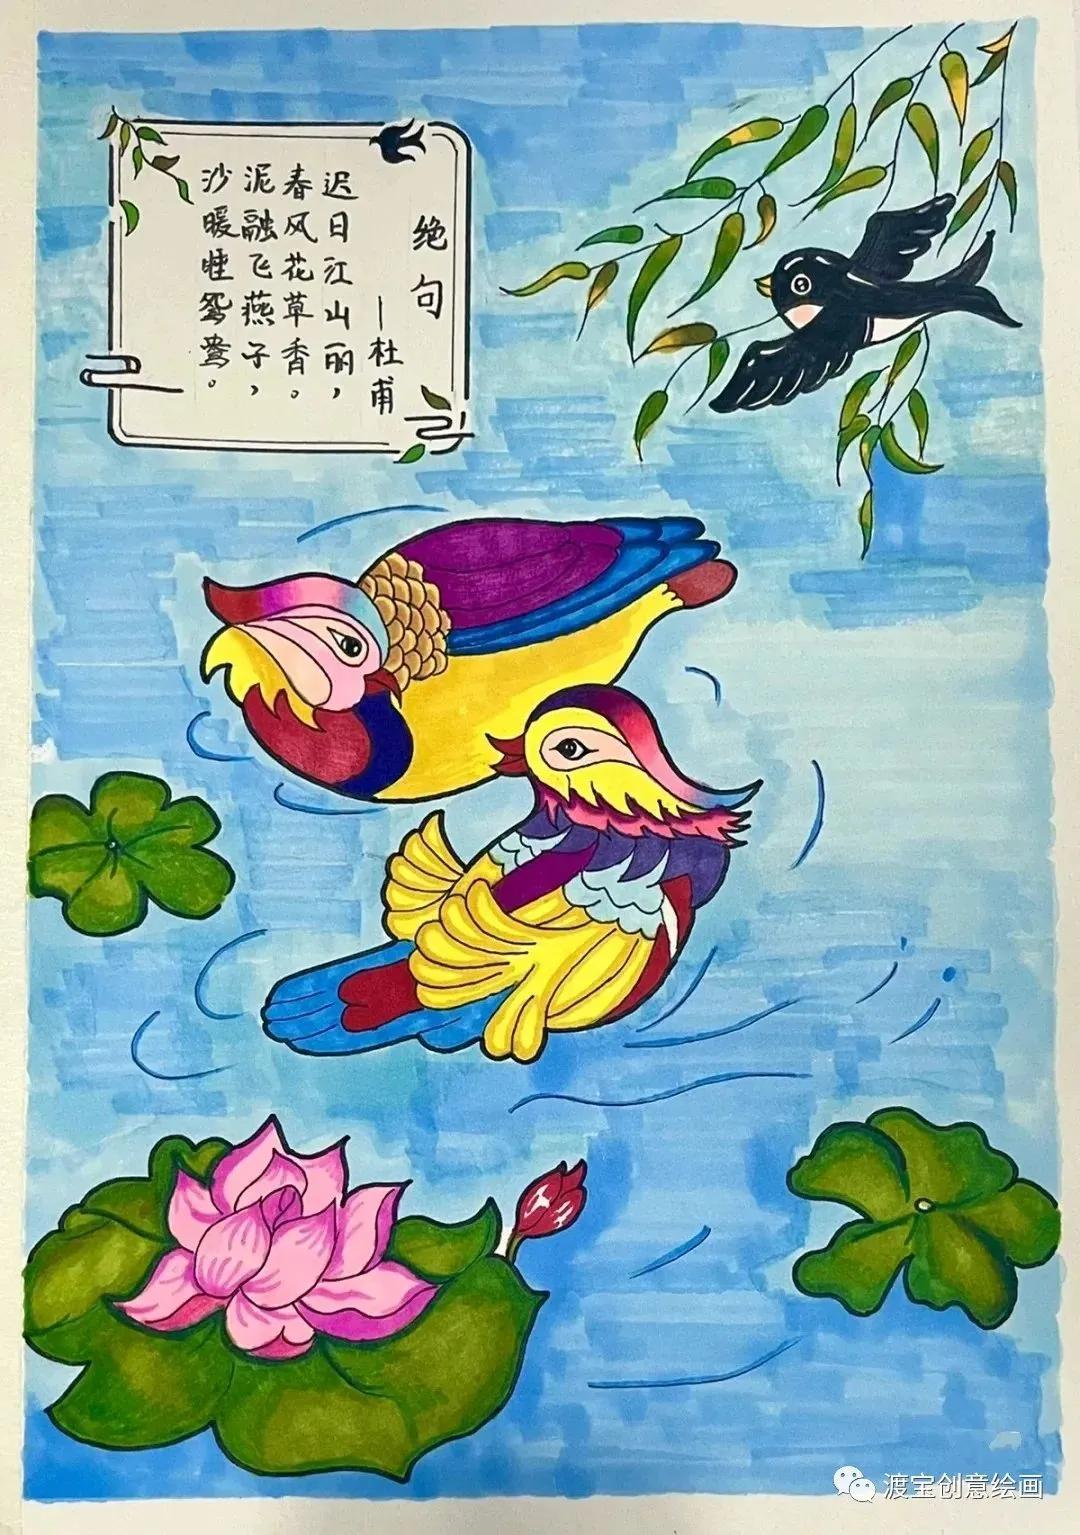 绝句
—杜甫
迟日江山丽，
春风花草香。
泥融飞燕子，
沙暖睡鸳鸯。
渡宝创意绘画